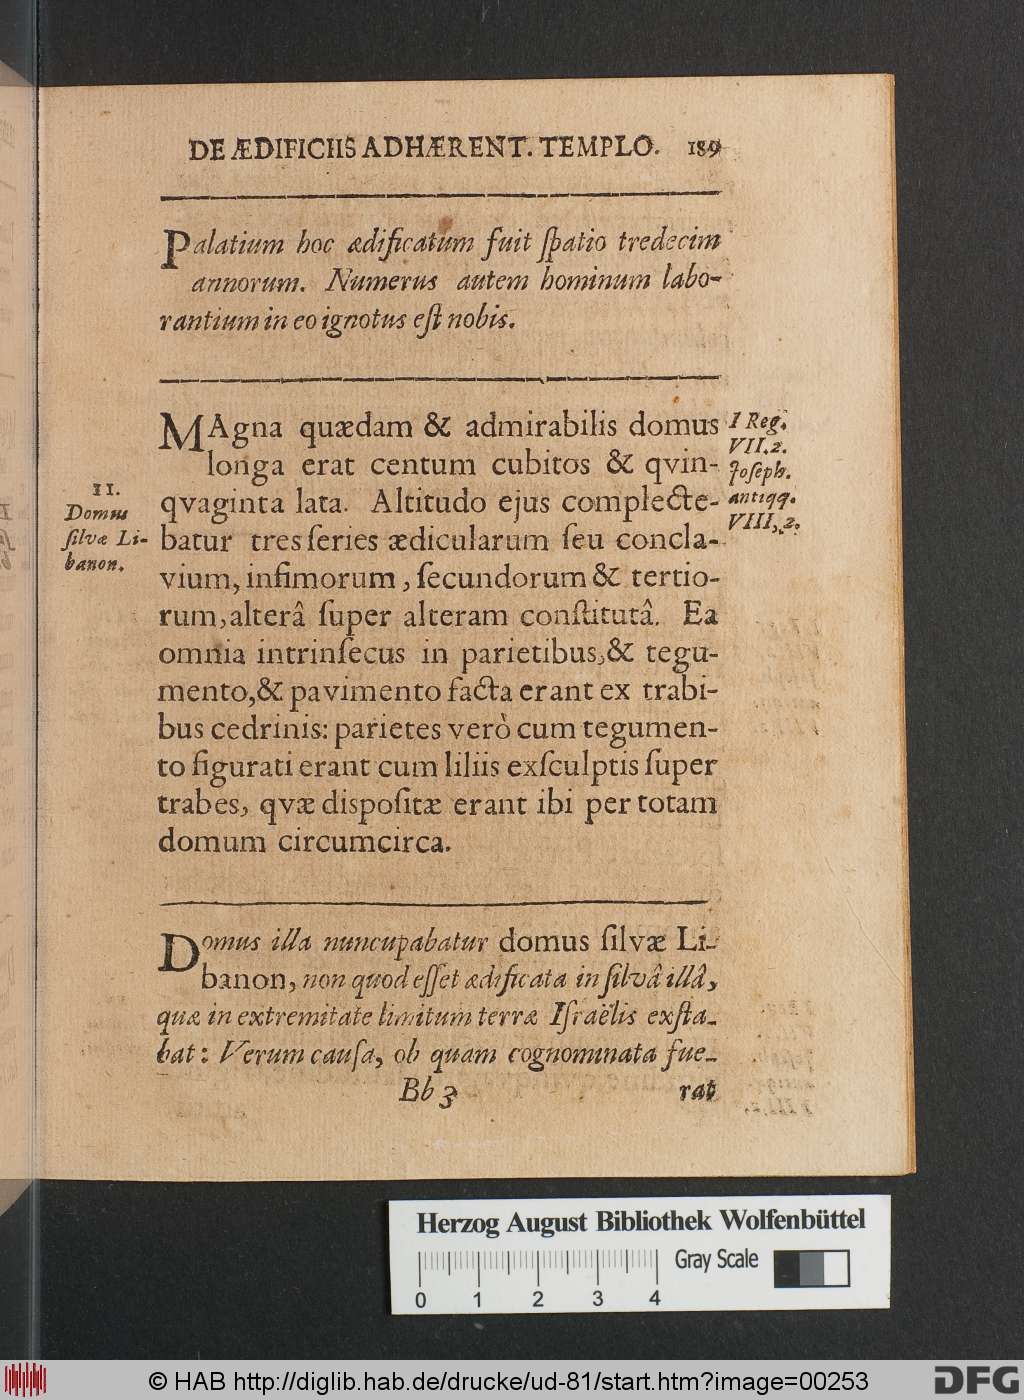 DE ÆDIFICIIS ADHÆRENT. TEMPLO. 189
Palatium hoc ædificatum fuit ſpatio tredecim
annorum. Numerus autem hominum labo-
rantium in eo ignotus eſt nobis.
MAgna quædam & admirabilis domus
longa erat centum cubitos & qvin-
qvaginta lata. Altitudo ejus complecte-
batur tres ſeries ædicularum ſeu concla-
vium, infimorum, ſecundorum & tertio-
rum, alterâ ſuper alteram conſtitutâ. Ea
omnia intrinſecus in parietibus, & tegu-
mento, & pavimento facta erant ex trabi-
bus cedrinis: parietes verò cum tegumen-
to figurati erant cum liliis exſculptis ſuper
trabes, qvæ diſpoſitæ erant ibi per totam
domum circumcirca.
I Reg.
VII. 2.
Joſeph.
antiqq.
VIII, 2.
II.
Domus
ſilvæ Li-
banon.
Domus illa nuncupabatur domus ſilvæ Li-
banon, non quod eſſet ædificata in ſilvâ illâ,
quæ in extremitate limitum terræ Iſraëlis exſta-
bat: Verum cauſa, ob quam cognominata fue-
Bb 3 rat
Herzog August Bibliothek Wolfenbüttel
Gray Scale
0 1 2 3 4
© HAB http://diglib.hab.de/drucke/ud-81/start.htm?image=00253
DFG